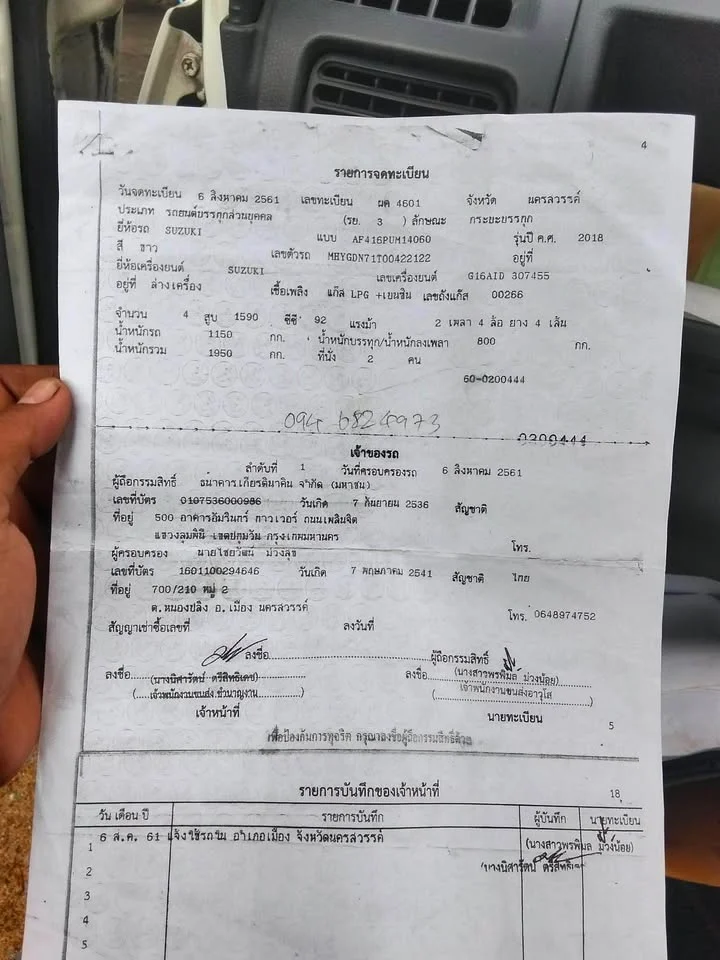 4
รายการจดทะเบียน
วันจดทะเบียน 6 สิงหาคม 2561 เลขทะเบียน ผค 4601 จังหวัด นครสวรรค์
ประเภท รถยนต์บรรทุกส่วนบุคคล (รย. 3 ) ลักษณะ กระบะบรรทุก
ยี่ห้อรถ SUZUKI แบบ AF416PUM14060 รุ่นปี ค.ศ. 2018
สี ขาว เลขตัวรถ MHYGDN71T00422122 อยู่ที่
ยี่ห้อเครื่องยนต์ SUZUKI เลขเครื่องยนต์ G16AID 307455
อยู่ที่ ล่างเครื่อง เชื้อเพลิง แก๊ส LPG +เบนซิน เลขถังแก๊ส 00266
จำนวน 4 สูบ 1590 ซีซี 92 แรงม้า 2 เพลา 4 ล้อ ยาง 4 เส้น
น้ำหนักรถ 1150 กก. น้ำหนักบรรทุก/น้ำหนักลงเพลา 800 กก.
น้ำหนักรวม 1950 กก. ที่นั่ง 2 คน
60-0200444
094 6824973
0200444
เจ้าของรถ
ลำดับที่ 1 วันที่ครอบครองรถ 6 สิงหาคม 2561
ผู้ถือกรรมสิทธิ์ ธนาคารเกียรตินาคิน จำกัด (มหาชน)
เลขที่บัตร 0107536000986 วันเกิด 7 กันยายน 2536 สัญชาติ
ที่อยู่ 500 อาคารอัมรินทร์ ทาวเวอร์ ถนนเพลินจิต
แขวงลุมพินี เขตปทุมวัน กรุงเทพมหานคร
โทร.
ผู้ครอบครอง นายไชยวัฒน์ ม่วงสุข
เลขที่บัตร 1601100294646 วันเกิด 7 พฤษภาคม 2541 สัญชาติ ไทย
ที่อยู่ 700/210 หมู่ 2
ต.หนองปลิง อ.เมือง นครสวรรค์ โทร. 0648974752
สัญญาเช่าซื้อเลขที่ ลงวันที่
ลงชื่อ ผู้ถือกรรมสิทธิ์
ลงชื่อ (นางนิศารัตน์ ตรีสิทธิเดช) ลงชื่อ (นางสาวพรพิมล ม่วงน้อย)
(เจ้าพนักงานขนส่งชำนาญงาน) (เจ้าพนักงานขนส่งอาวุโส)
เจ้าหน้าที่ นายทะเบียน
5
เพื่อป้องกันการทุจริต กรุณาลงชื่อผู้ถือกรรมสิทธิ์ด้วย
รายการบันทึกของเจ้าหน้าที่ 18
วัน เดือน ปี รายการบันทึก ผู้บันทึก นายทะเบียน
6 ส.ค. 61 แจ้งใช้รถใน อำเภอเมือง จังหวัดนครสวรรค์
1 (นางสาวพรพิมล ม่วงน้อย)
2 (นางนิศารัตน์ ตรีสิทธิเดช)
3
4
5